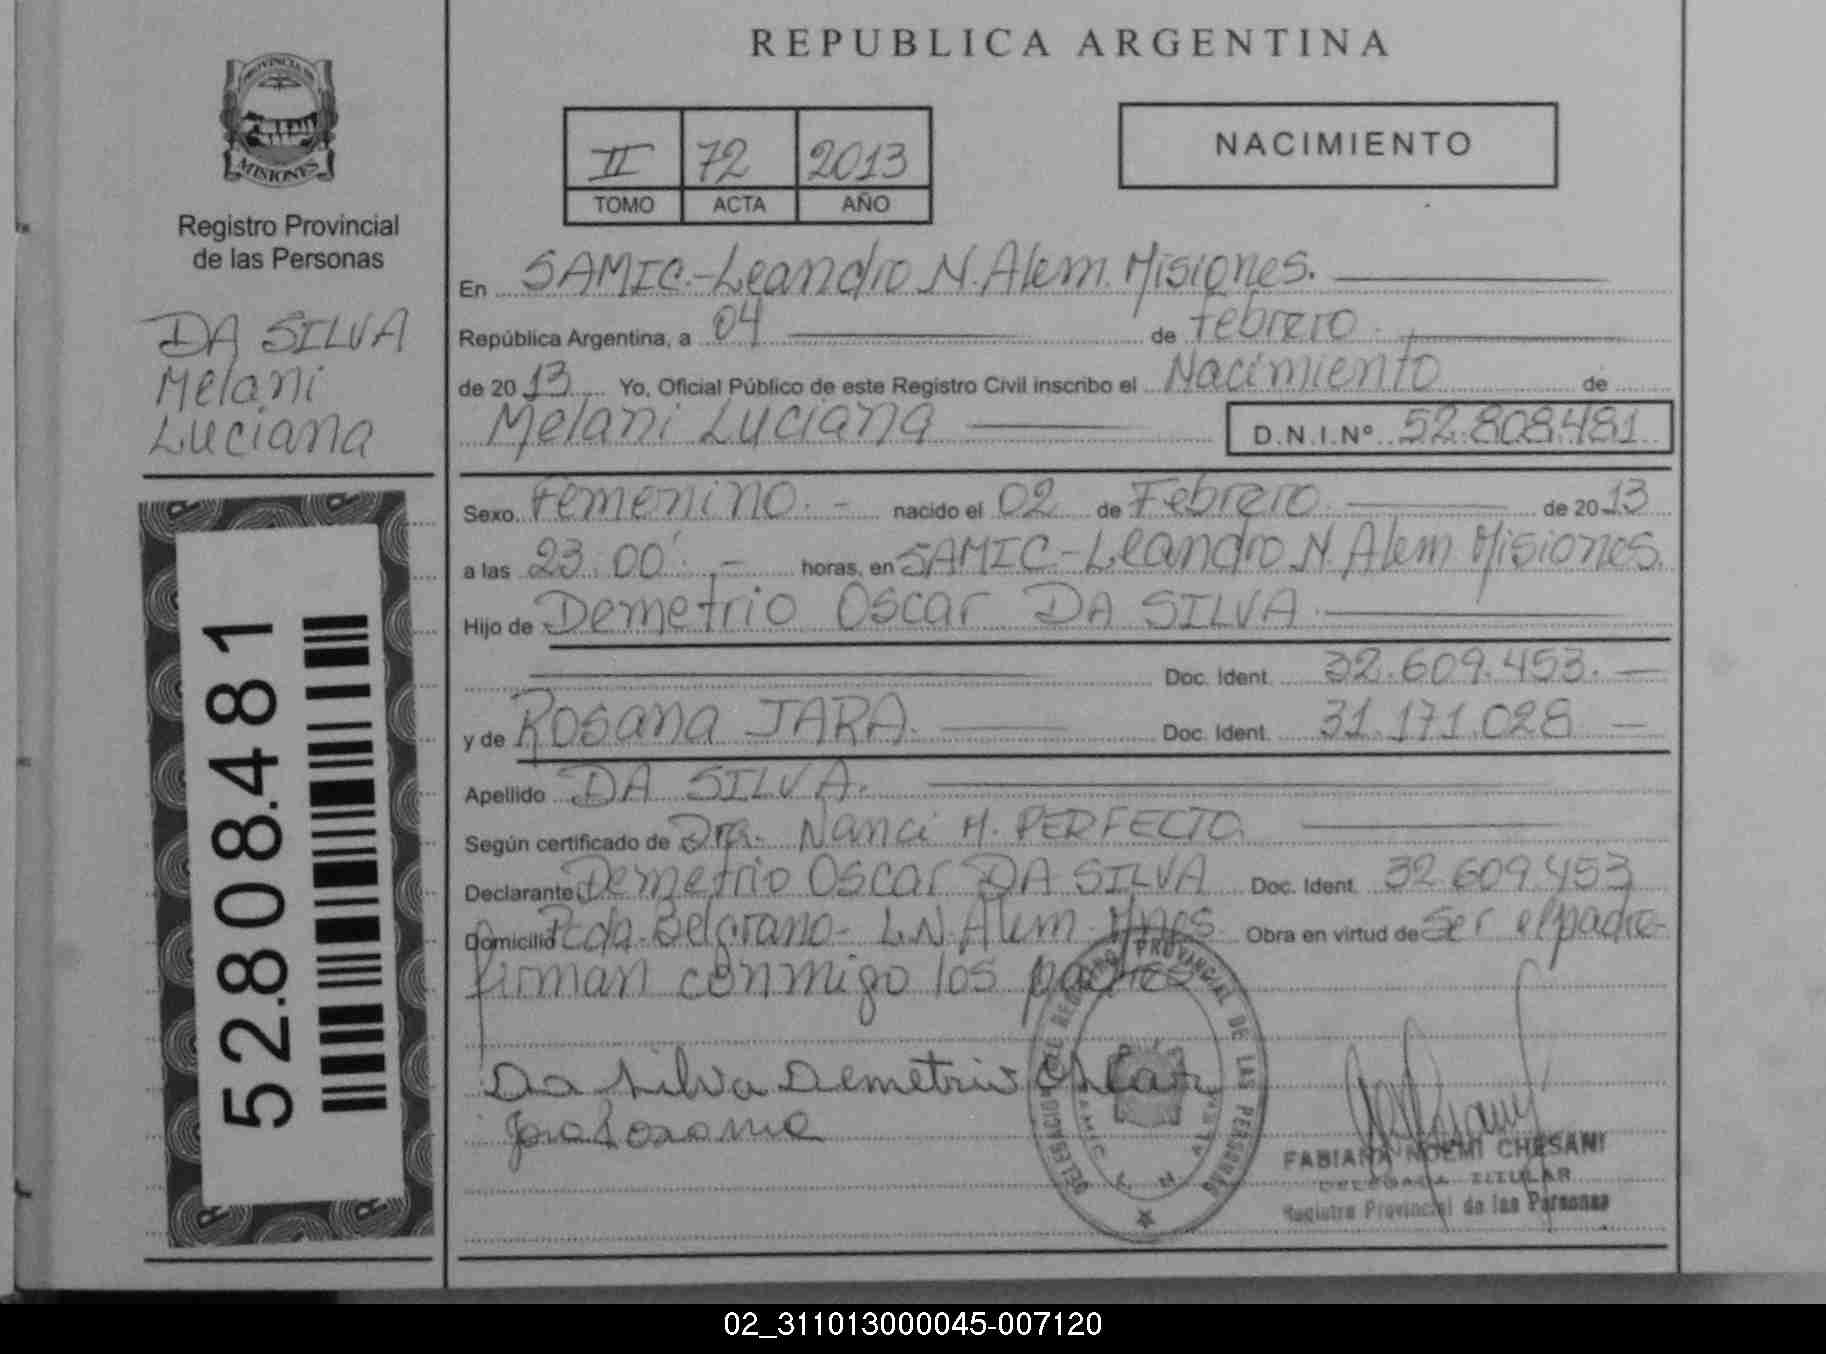 REPUBLICA ARGENTINA
PROVINCIA DE
MISIONES
Registro Provincial
de las Personas
DA SILVA
Melani
Luciana
52.808.481
II 72 2013
TOMO ACTA AÑO
NACIMIENTO
En SAMIC.-Leandro N. Alem. Misiones.
República Argentina, a 04 de febrero.
de 20 13 Yo, Oficial Público de este Registro Civil inscribo el Nacimiento de
Melani Luciana D.N.I.Nº 52.808.481
Sexo Femenino.- nacido el 02 de Febrero. de 20 13
a las 23:00'.- horas, en SAMIC-Leandro N. Alem Misiones.
Hijo de Demetrio Oscar DA SILVA.
Doc. Ident. 32.609.453.
y de Rosana JARA. Doc. Ident. 31.171.028
Apellido DA SILVA.
Según certificado de Dra. Nanci M. PERFECTO.
Declarante Demetrio Oscar DA SILVA Doc. Ident. 32.609.453
Domicilio Pcda. Belgrano- L.N. Alem- Mnes. Obra en virtud de ser el padre-
firman conmigo los padres
Da Silva Demetrio Oscar
Jara Rosana
DELEGACION REGISTRO PROVINCIAL DE LAS PERSONAS
SAMIC
FABIANA NOEMI CHESANI
DELEGADA TITULAR
Registro Provincial de las Personas
02_311013000045-007120